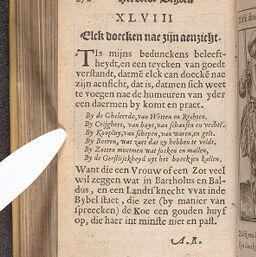 XLVIII
Elck doecken nae zijn aenzicht.
TIs mijns bedunckens beleeft-
heydt, en een teycken van goedt
verstandt, darmē elck can doeckē nae
zijn aensicht, dat is, datmen sich weet
te voegen nae de humeuren van yder
een daermen by komt en praet.
By de Gheleerde, van Wetten en Rechten,
By Crijghers, van buyt, van schansen en vechten.
By Koopluy, van schepen, van waren, en gelt.
By Boeren, wat zaet dat zy hebben te veldt.
By Zotten moetmen wat jocken en mallen,
By de Geestlijckheydt het boeckjen
Want die een Vrouw of een Zot veel
wil zeggen wat in Bartholus en Bal-
dus, en een Landtsknecht wat inde
Bybel staet, die zet (by manier van
spreecken) de Koe een gouden huyf
op, die haer int minste niet en past.
A.R.